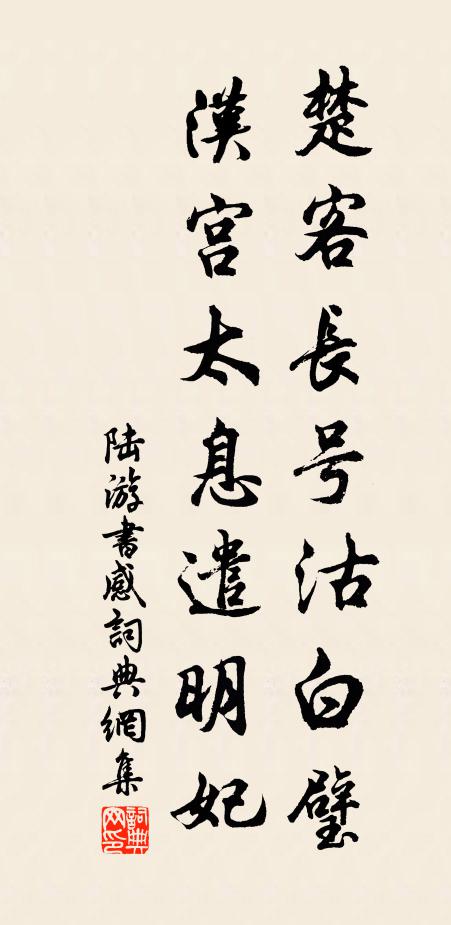 楚客長号沽白璧
漢宫太息遣明妃
陆游書感詞典網集
詞典網印